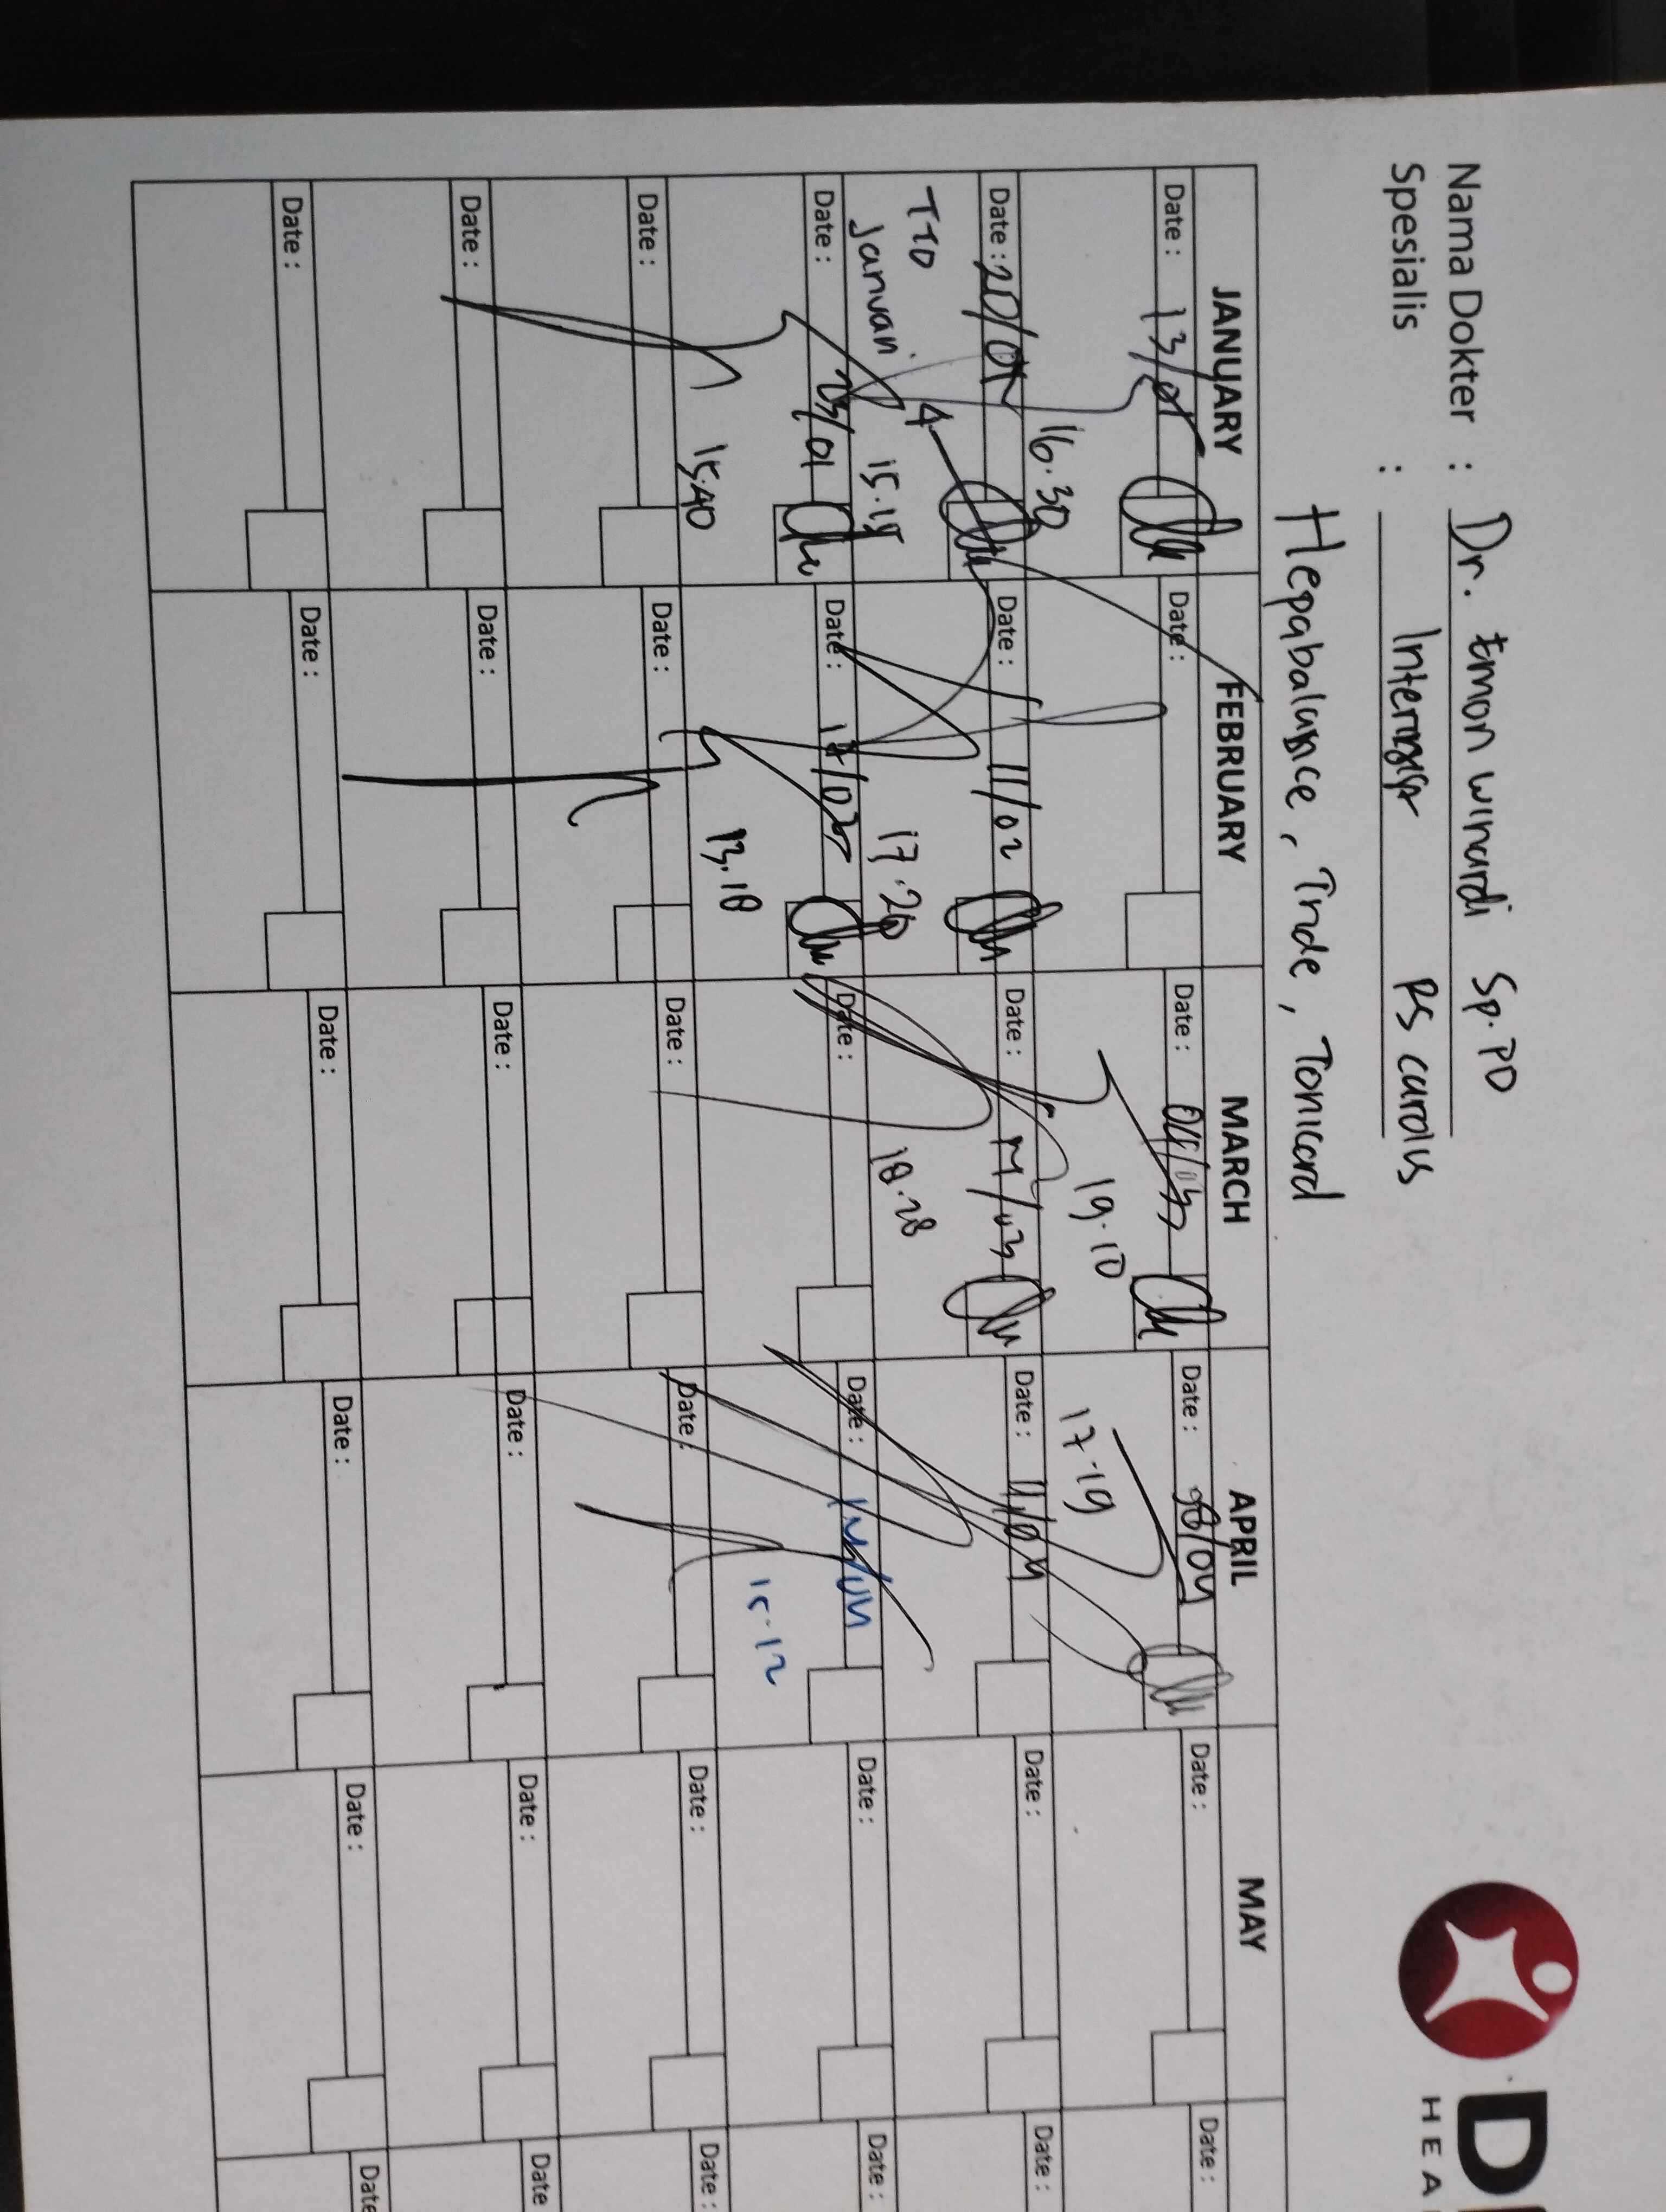 Nama Dokter : Dr. Emon winardi Sp.PD
Spesialis : Internist RS carolus
Hepabalance, Tride, Tonicard
D
HEA
JANUARY FEBRUARY MARCH APRIL MAY
Date : 13/01 Date : Date : 04/03 Date : 08/04 Date : Date :
16.30 19.10 17.19
Date : 20/01 Date : 11/02 Date : 17/03 Date : 11/04 Date : Date :
TTD Januari 15.15 17.20 18.28
Date : 23/01 Date : 17/02 Date : Date : Date : Date :
15.40 13.18 15.12
Date : Date : Date : Date : Date : Date :
Date : Date : Date : Date : Date : Date
Date : Date : Date : Date : Date : Date